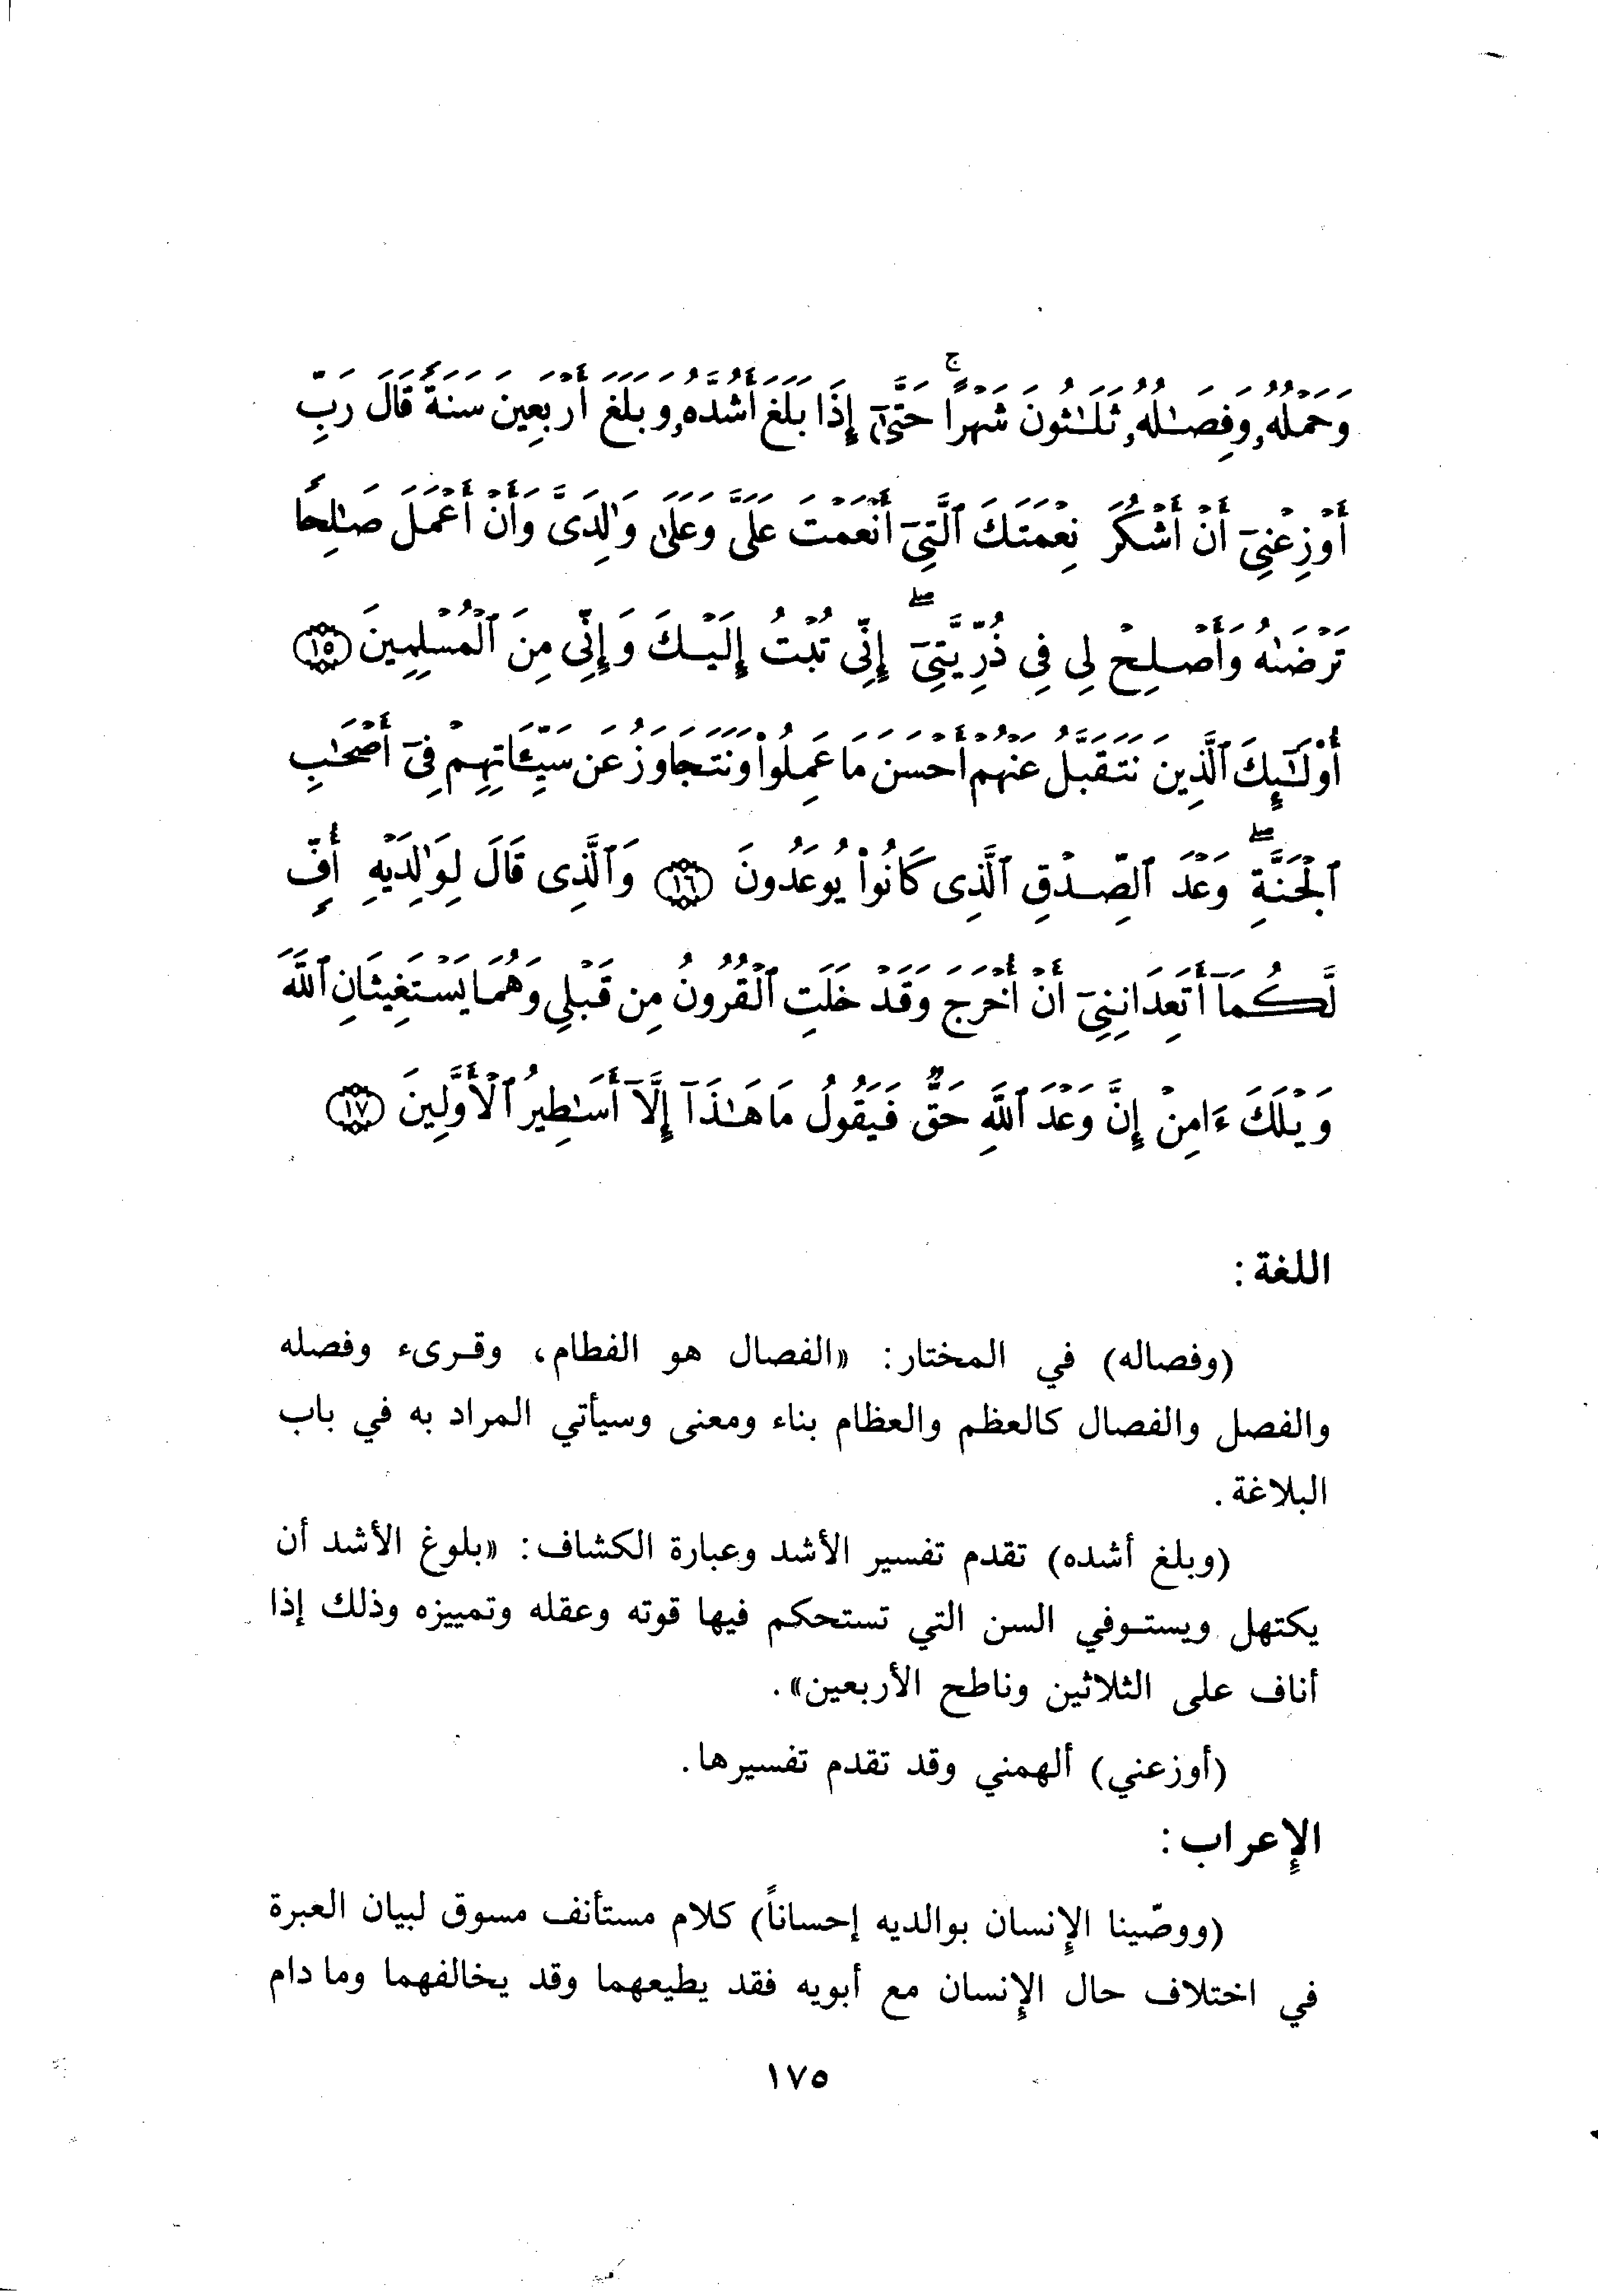 وَحَمْلُهُۥ وَفِصَـٰلُهُۥ ثَلَـٰثُونَ شَهْرًا ۚ حَتَّىٰٓ إِذَا بَلَغَ أَشُدَّهُۥ وَبَلَغَ أَرْبَعِينَ سَنَةً قَالَ رَبِّ
أَوْزِعْنِىٓ أَنْ أَشْكُرَ نِعْمَتَكَ ٱلَّتِىٓ أَنْعَمْتَ عَلَىَّ وَعَلَىٰ وَٰلِدَىَّ وَأَنْ أَعْمَلَ صَـٰلِحًا
تَرْضَىٰهُ وَأَصْلِحْ لِى فِى ذُرِّيَّتِىٓ ۖ إِنِّى تُبْتُ إِلَيْكَ وَإِنِّى مِنَ ٱلْمُسْلِمِينَ ﴿١٥﴾
أُو۟لَـٰٓئِكَ ٱلَّذِينَ نَتَقَبَّلُ عَنْهُمْ أَحْسَنَ مَا عَمِلُوا۟ وَنَتَجَاوَزُ عَن سَيِّـَٔاتِهِمْ فِىٓ أَصْحَـٰبِ
ٱلْجَنَّةِ ۖ وَعْدَ ٱلصِّدْقِ ٱلَّذِى كَانُوا۟ يُوعَدُونَ ﴿١٦﴾ وَٱلَّذِى قَالَ لِوَٰلِدَيْهِ أُفٍّ
لَّكُمَآ أَتَعِدَانِنِىٓ أَنْ أُخْرَجَ وَقَدْ خَلَتِ ٱلْقُرُونُ مِن قَبْلِى وَهُمَا يَسْتَغِيثَانِ ٱللَّهَ
وَيْلَكَ ءَامِنْ إِنَّ وَعْدَ ٱللَّهِ حَقٌّ فَيَقُولُ مَا هَـٰذَآ إِلَّآ أَسَـٰطِيرُ ٱلْأَوَّلِينَ ﴿١٧﴾
اللغة :
(وفصاله) في المختار: «الفصال هو الفطام، وقـرىء وفصله
والفصل والفصال كالعظم والعظام بناء ومعنى وسيأتي المراد به في باب
البلاغة .
(وبلغ أشده) تقدم تفسير الأشد وعبارة الكشاف: «بلوغ الأشد أن
يكتهل ويستـوفي السن التي تستحكم فيها قوته وعقله وتمييزه وذلك إذا
أناف على الثلاثين وناطح الأربعين» .
(أوزعني) ألهمني وقد تقدم تفسيرها .
الإعراب :
(ووصّينا الإنسان بوالديه إحساناً) كلام مستأنف مسوق لبيان العبرة
في اختلاف حال الإنسان مع أبويه فقد يطيعهما وقد يخالفهما وما دام
١٧٥